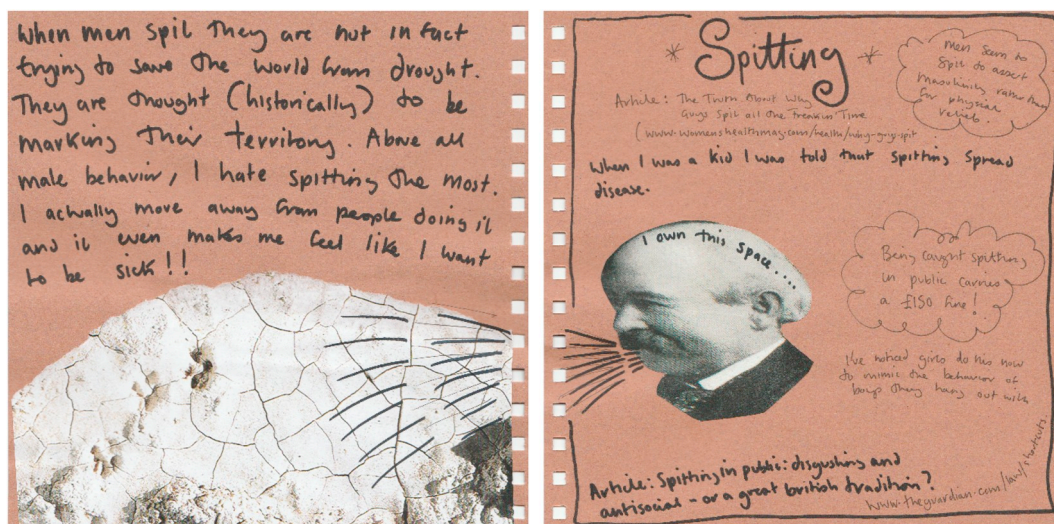 When men spit they are not in fact
trying to save the world from drought.
They are thought (historically) to be
marking their territory. Above all
male behavior, I hate spitting the most.
I actually move away from people doing it
and it even makes me feel like I want
to be sick!!
Spitting
Article: The Truth About Why
Guys Spit all the Freakin Time
(www.womenshealthmag.com/health/why-guys-spit
men seem to
spit to assert
masculinity rather than
for physical
relief.
When I was a kid I was told that spitting spread
disease.
I own this space....
Being caught spitting
in public carries
a £150 fine!
I've noticed girls do this now
to mimic the behavior of
boys they hang out with
Article: Spitting in public: disgusting and
antisocial - or a great british tradition?
www.theguardian.com/law/shortcuts.